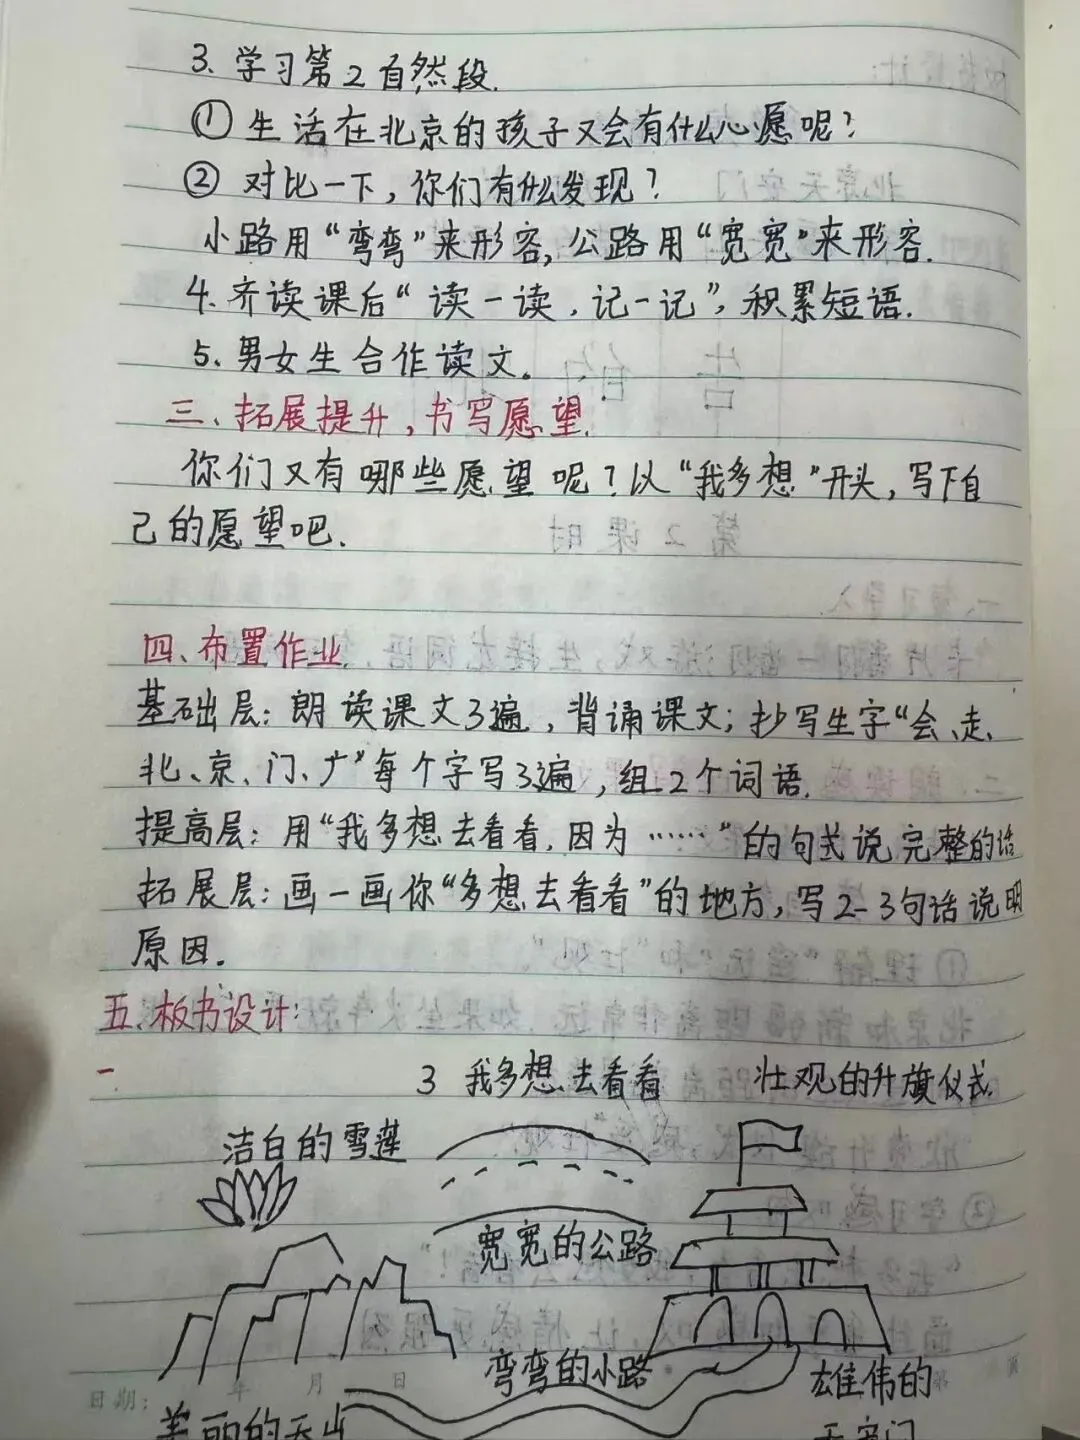 3、学习第2自然段.
①生活在北京的孩子又会有什么心愿呢?
②对比一下,你们有什么发现?
小路用“弯弯”来形容,公路用“宽宽”来形容.
4.齐读课后“读一读,记一记”,积累短语.
5、男女生合作读文。
三、拓展提升,书写愿望.
你们又有哪些愿望呢?以“我多想”开头,写下自
己的愿望吧.
四、布置作业.
基础层:朗读课文3遍,背诵课文;抄写生字“会、走、
北、京、门、广”每个字写3遍,组2个词语.
提高层:用“我多想去看看,因为……”的句式说完整的话
拓展层:画一画你“多想去看看”的地方,写2-3句话说明
原因.
五.板书设计:
3 我多想去看看
壮观的升旗仪式
洁白的雪莲
宽宽的公路
弯弯的小路
雄伟的
天安门
美丽的天山
日期: 年 月 日